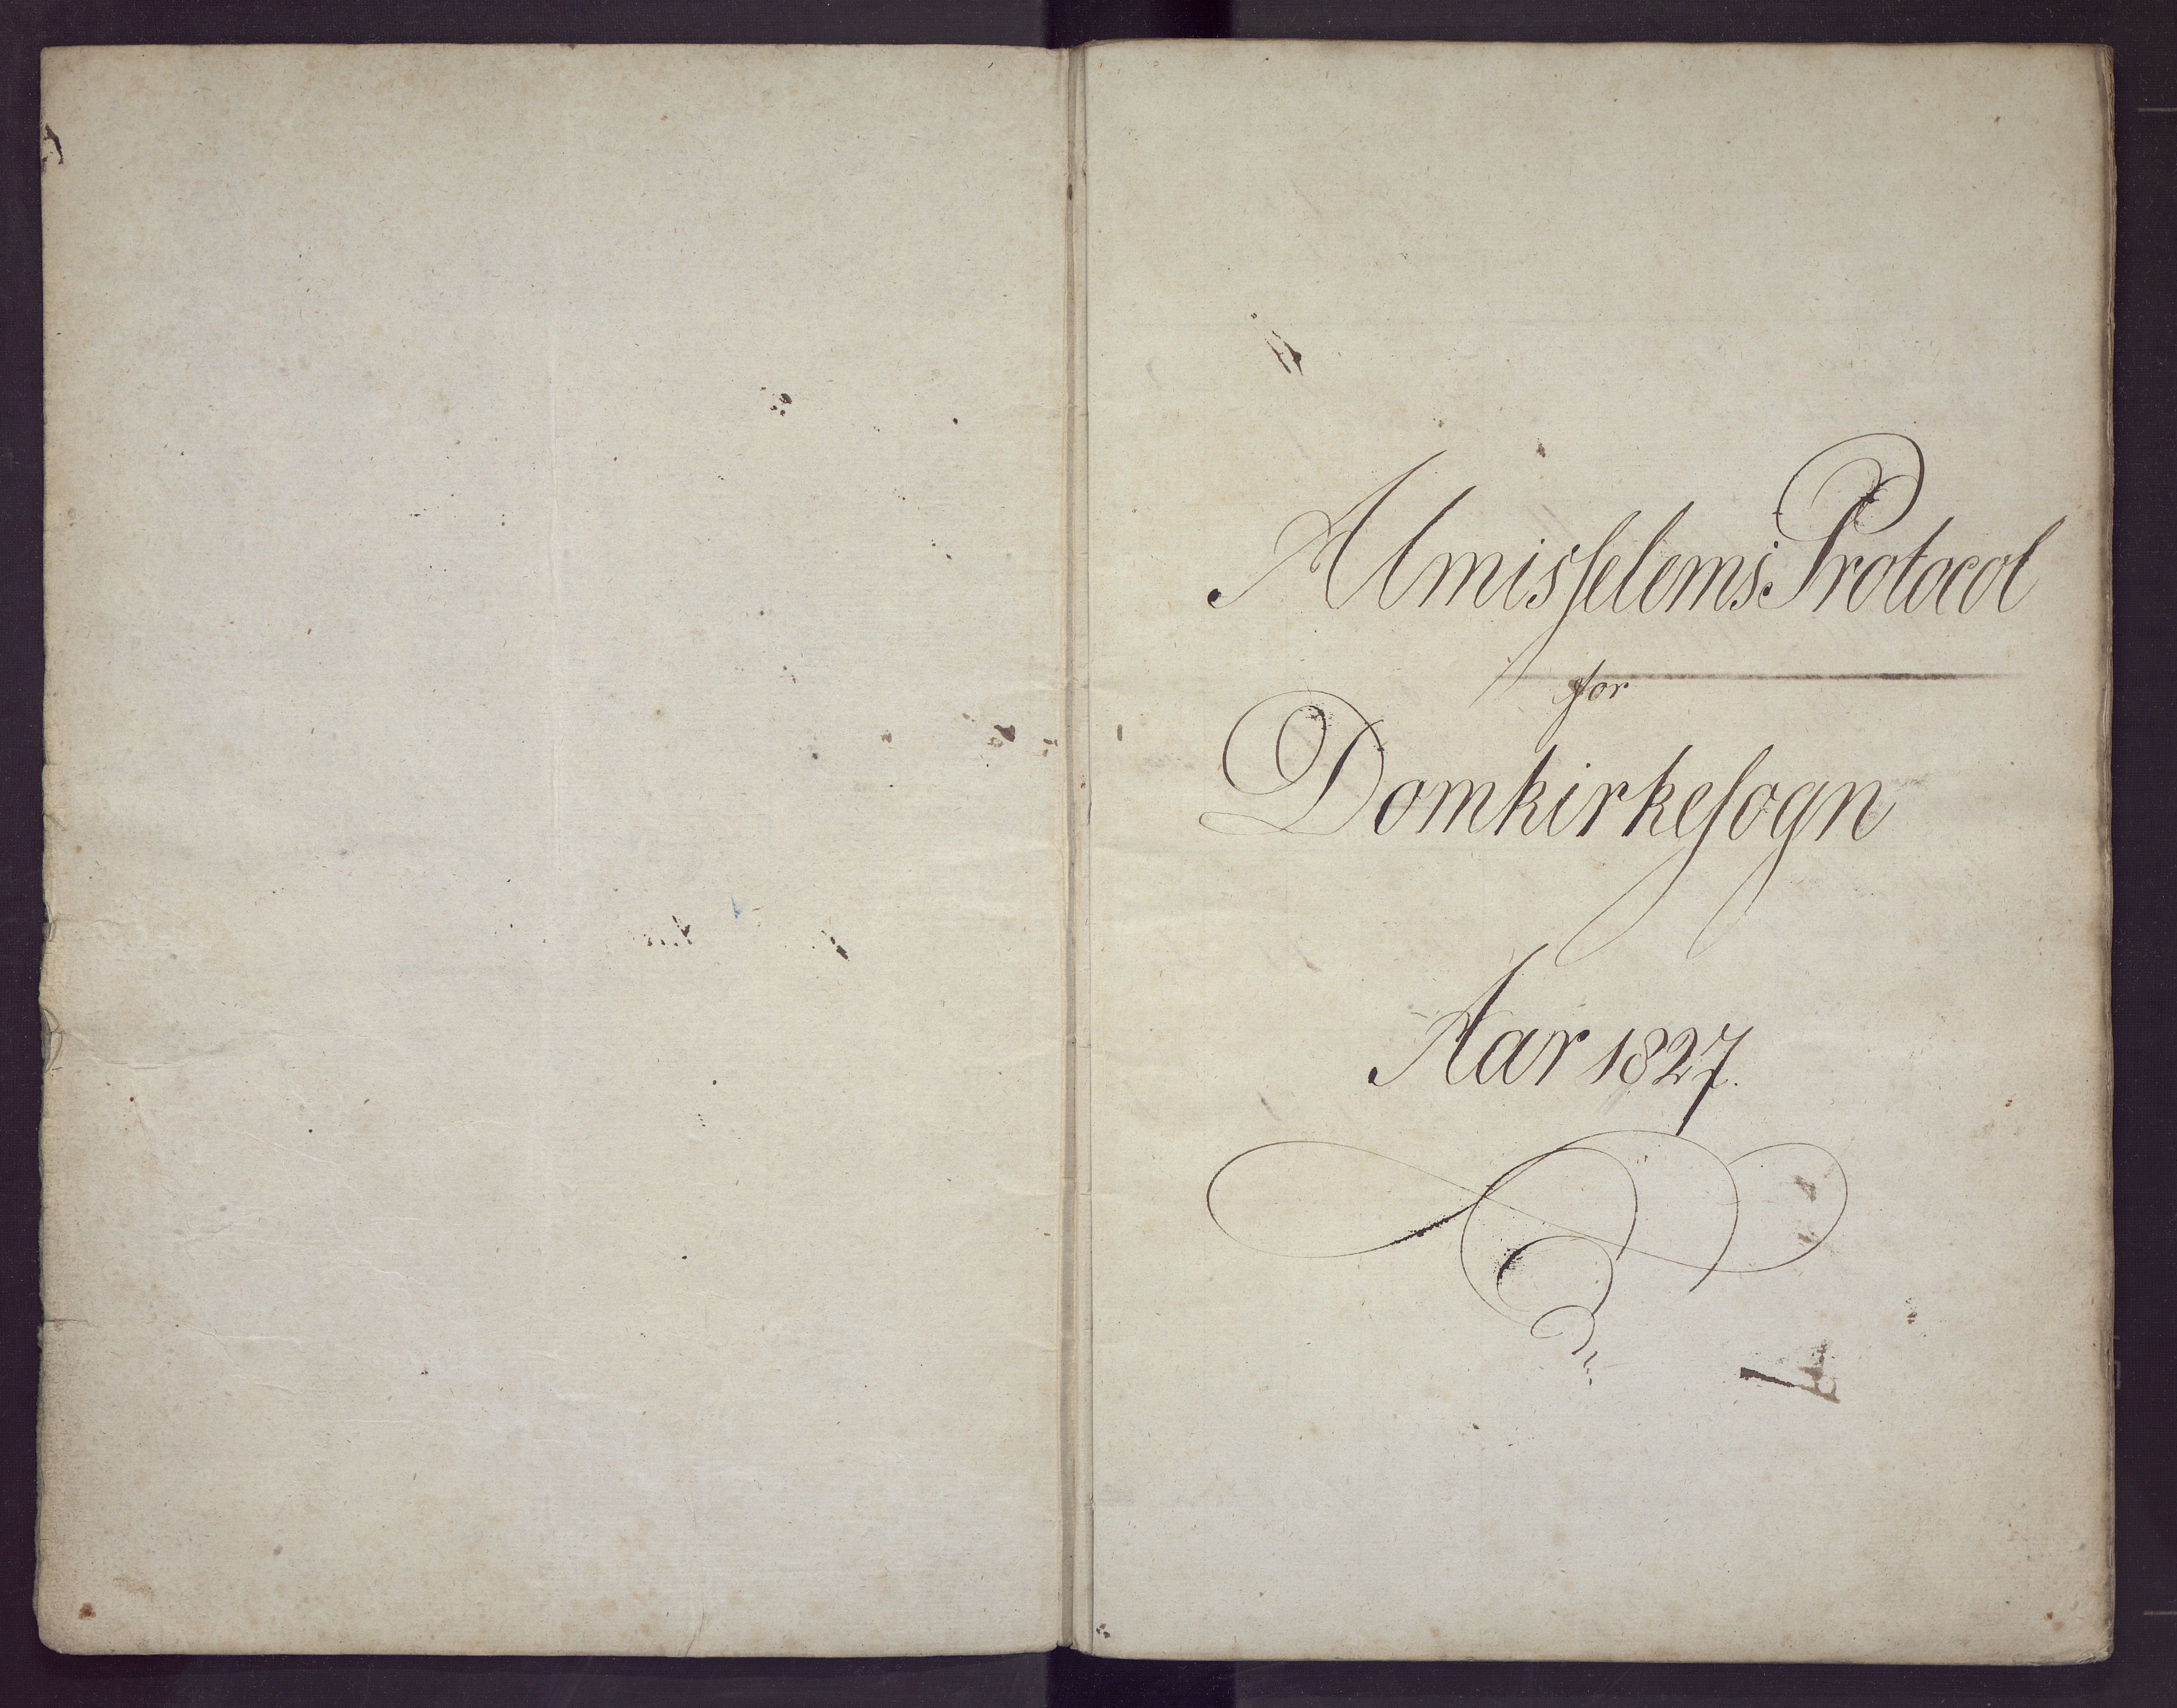 Almisselems Protocol
for
Domkirkesogn
Aar 1827.